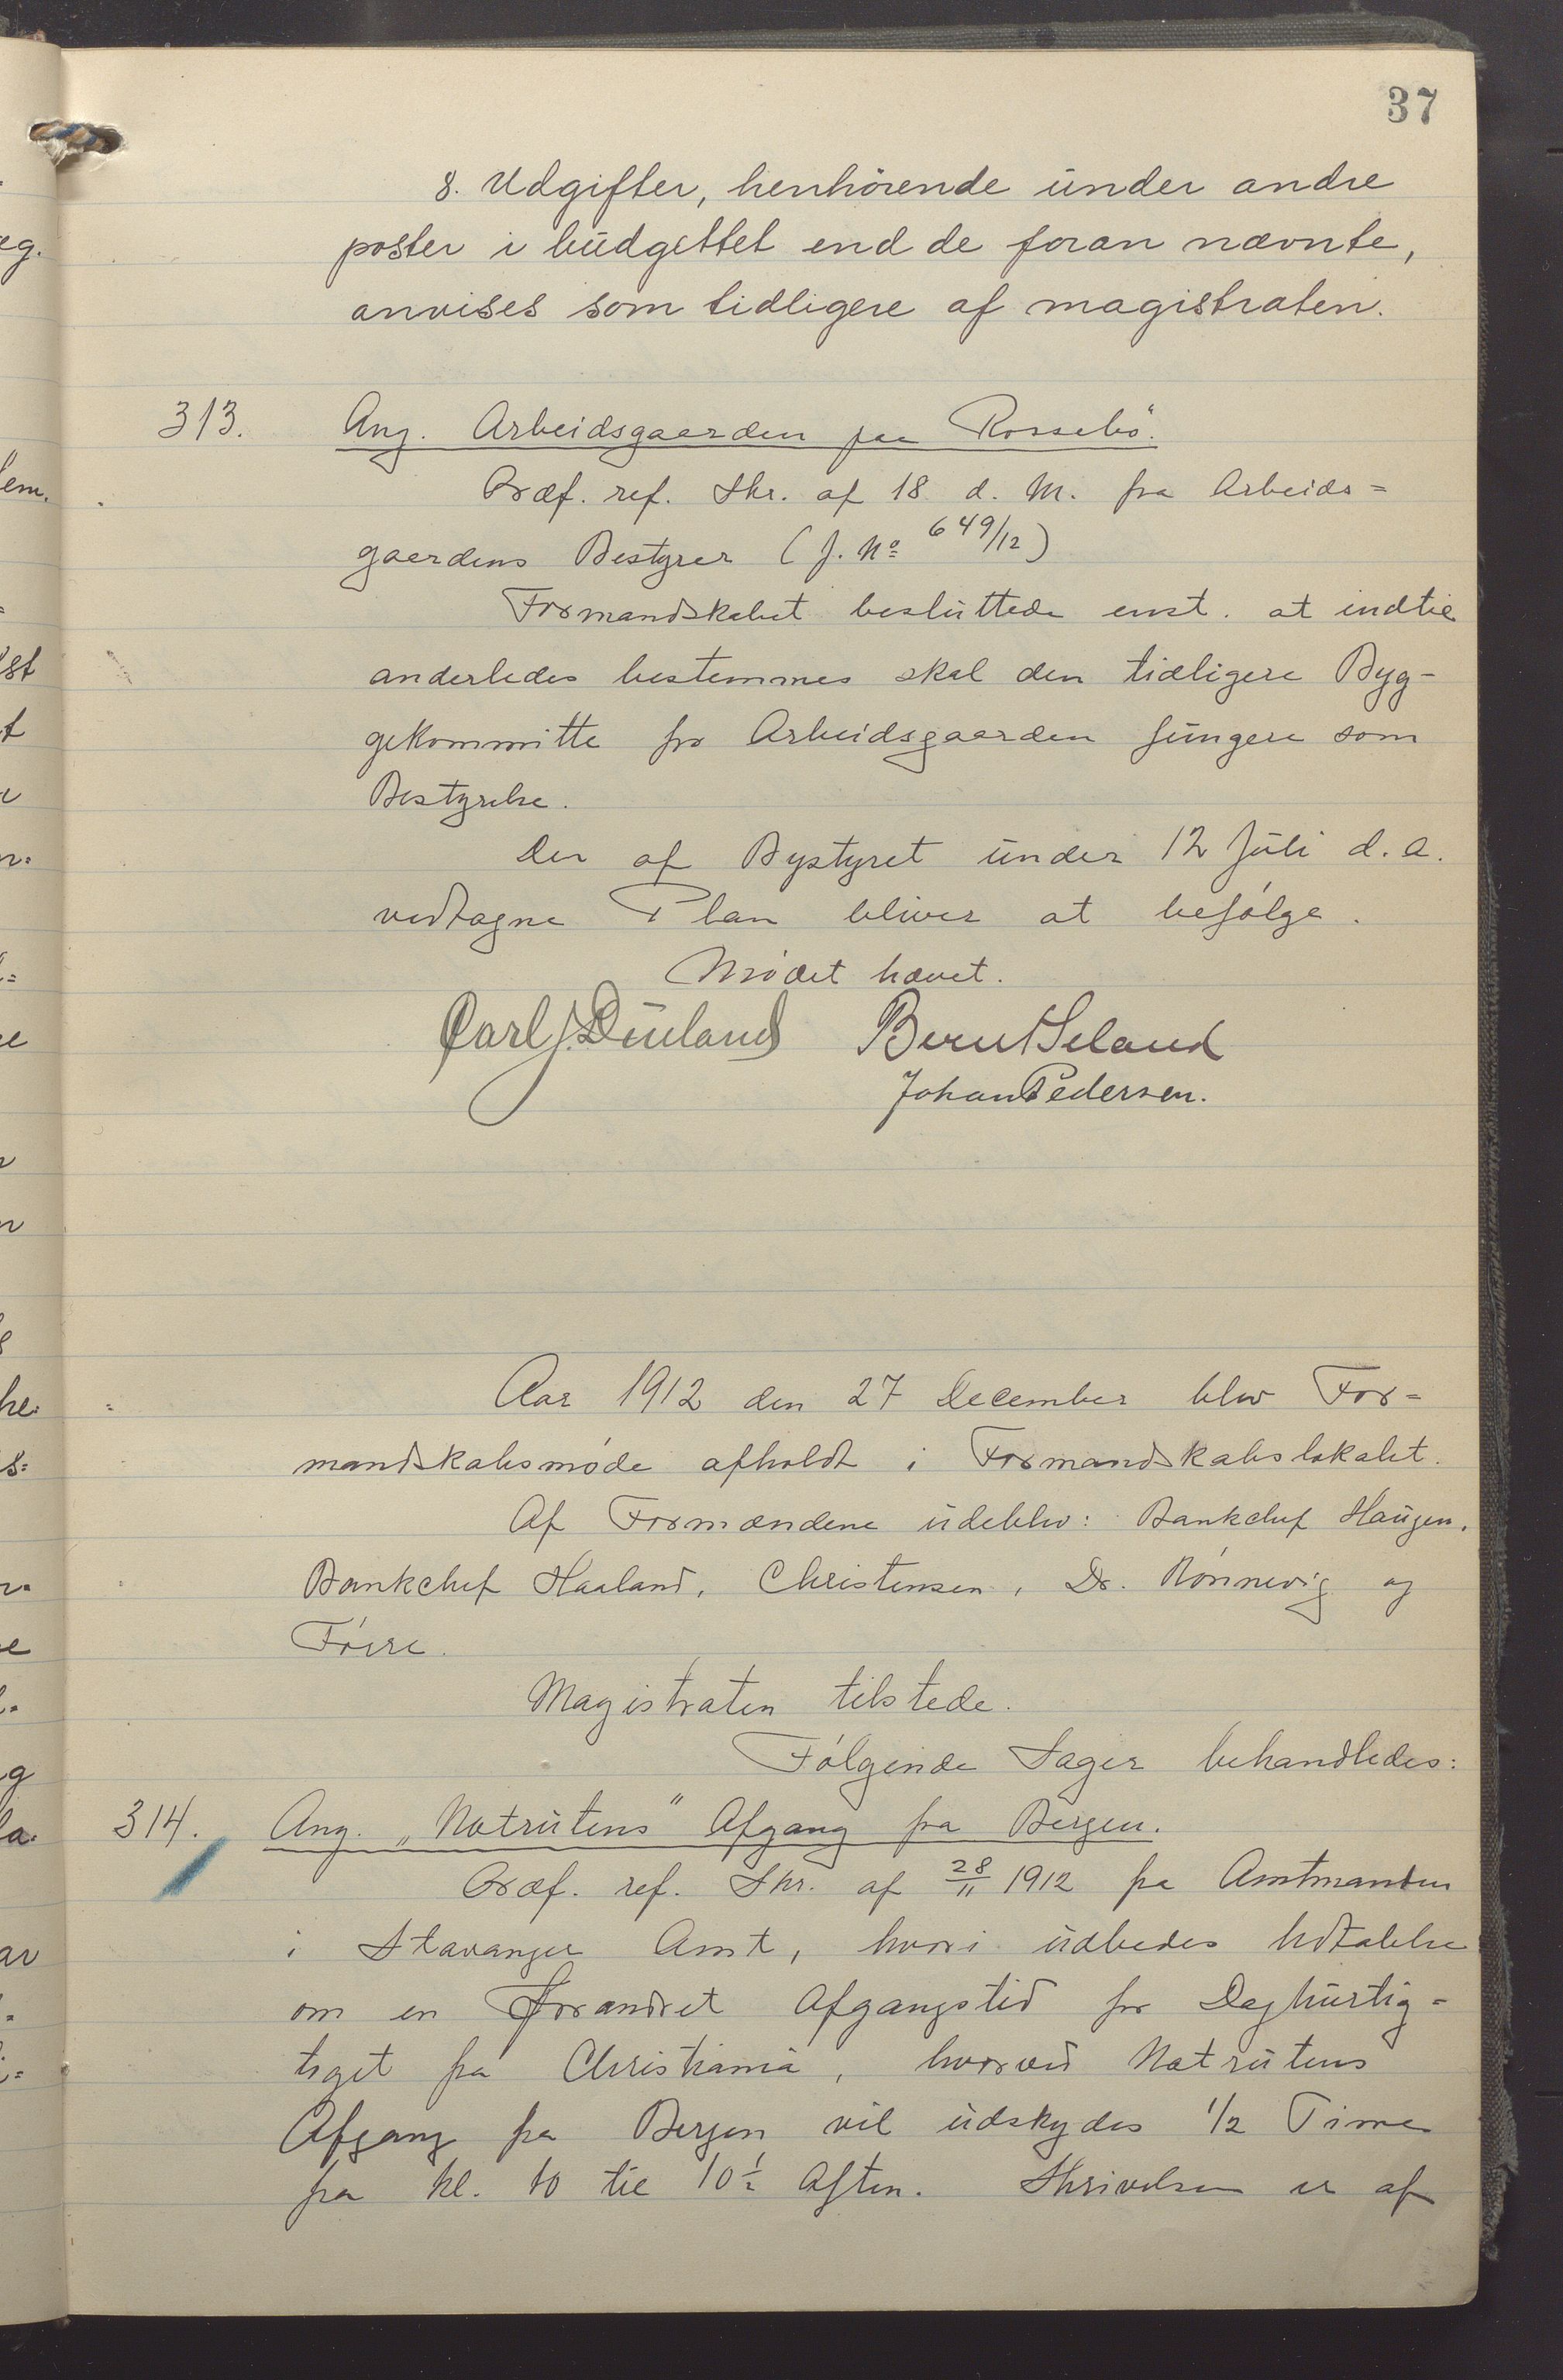 37
8. Udgifter, henhörende under andre
poster i budgettet end de foran nævnte,
anvises som tidligere af magistraten.
313. Ang. Arbeidsgaarden paa Rossebö".
Præf. ref. Skr. af 18 d. M. fra Arbeids=
gaardens Bestyrer (J. No 649/12)
Formandskabet besluttede enst. at indtil
anderledes bestemmes skal den tidligere Byg-
gekommitte for Arbeidsgaarden fungere som
Bestyrelse.
Den af Bystyret under 12 Juli d. a.
vedtagne Plan bliver at befølge.
Mødet hævet.
Carl J. Bernt Seland
Johan Pedersen.
Aar 1912 den 27 December blev For=
mandskabsmøde afholdt i Formandskabslokalet.
Af Formændene udeblev: Bankchef Haugen,
Bankchef Haaland, Christensen, Dr. Rønnevig og
Førre.
Magistraten tilstede.
Følgende Sager behandledes:
314. Ang. „Natrutens" Afgang fra Bergen.
Præf. ref. Skr. af 28/11 1912 fra Amtmanden
i Stavanger Amt, hvori udbedes Udtalelse
om en forandret Afgangstid for Daghurtig=
toget fra Christiania, hvorved Natrutens
Afgang fra Bergen vil udskydes 1/2 Time
fra kl. 10 til 10½ Aften. Skrivelsen er af